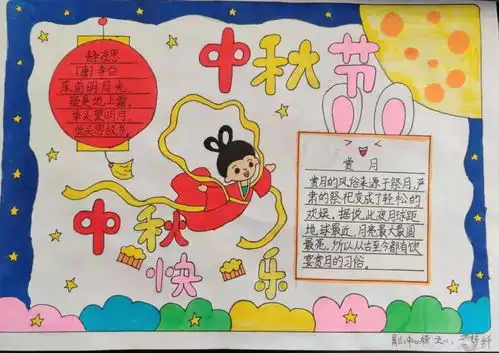 中秋节
静夜思
[唐]李白
床前明月光
疑是地上霜,
举头望明月,
低头思故乡。
赏月
赏月的风俗来源于祭月,严
肃的祭祀变成了轻松的
欢娱。据说,此夜月球距
地球最近,月亮最大最圆
最亮,所以从古至今都有饮
宴赏月的习俗。
中秋
快乐